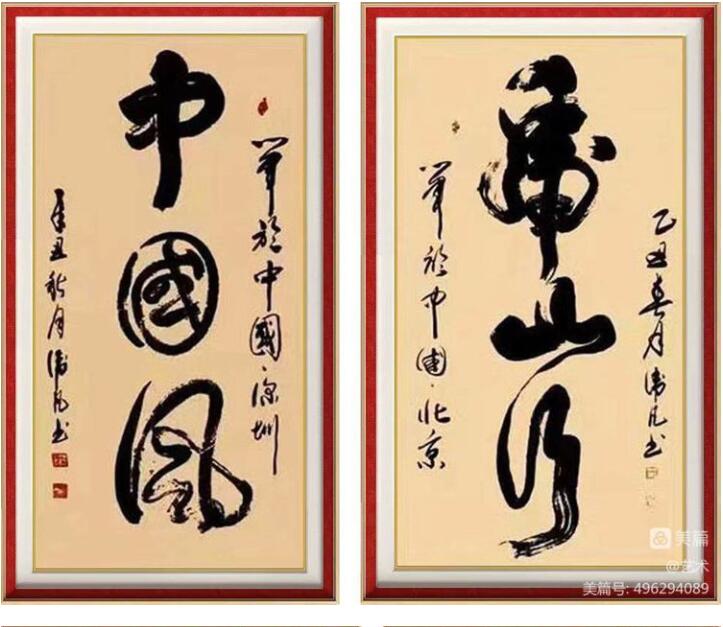 中國風
筆於中國·深圳
辛丑秋月 书
虎山行
乙丑春月 书
筆於中國·北京
美篇
@艺术
美篇号: 496294089